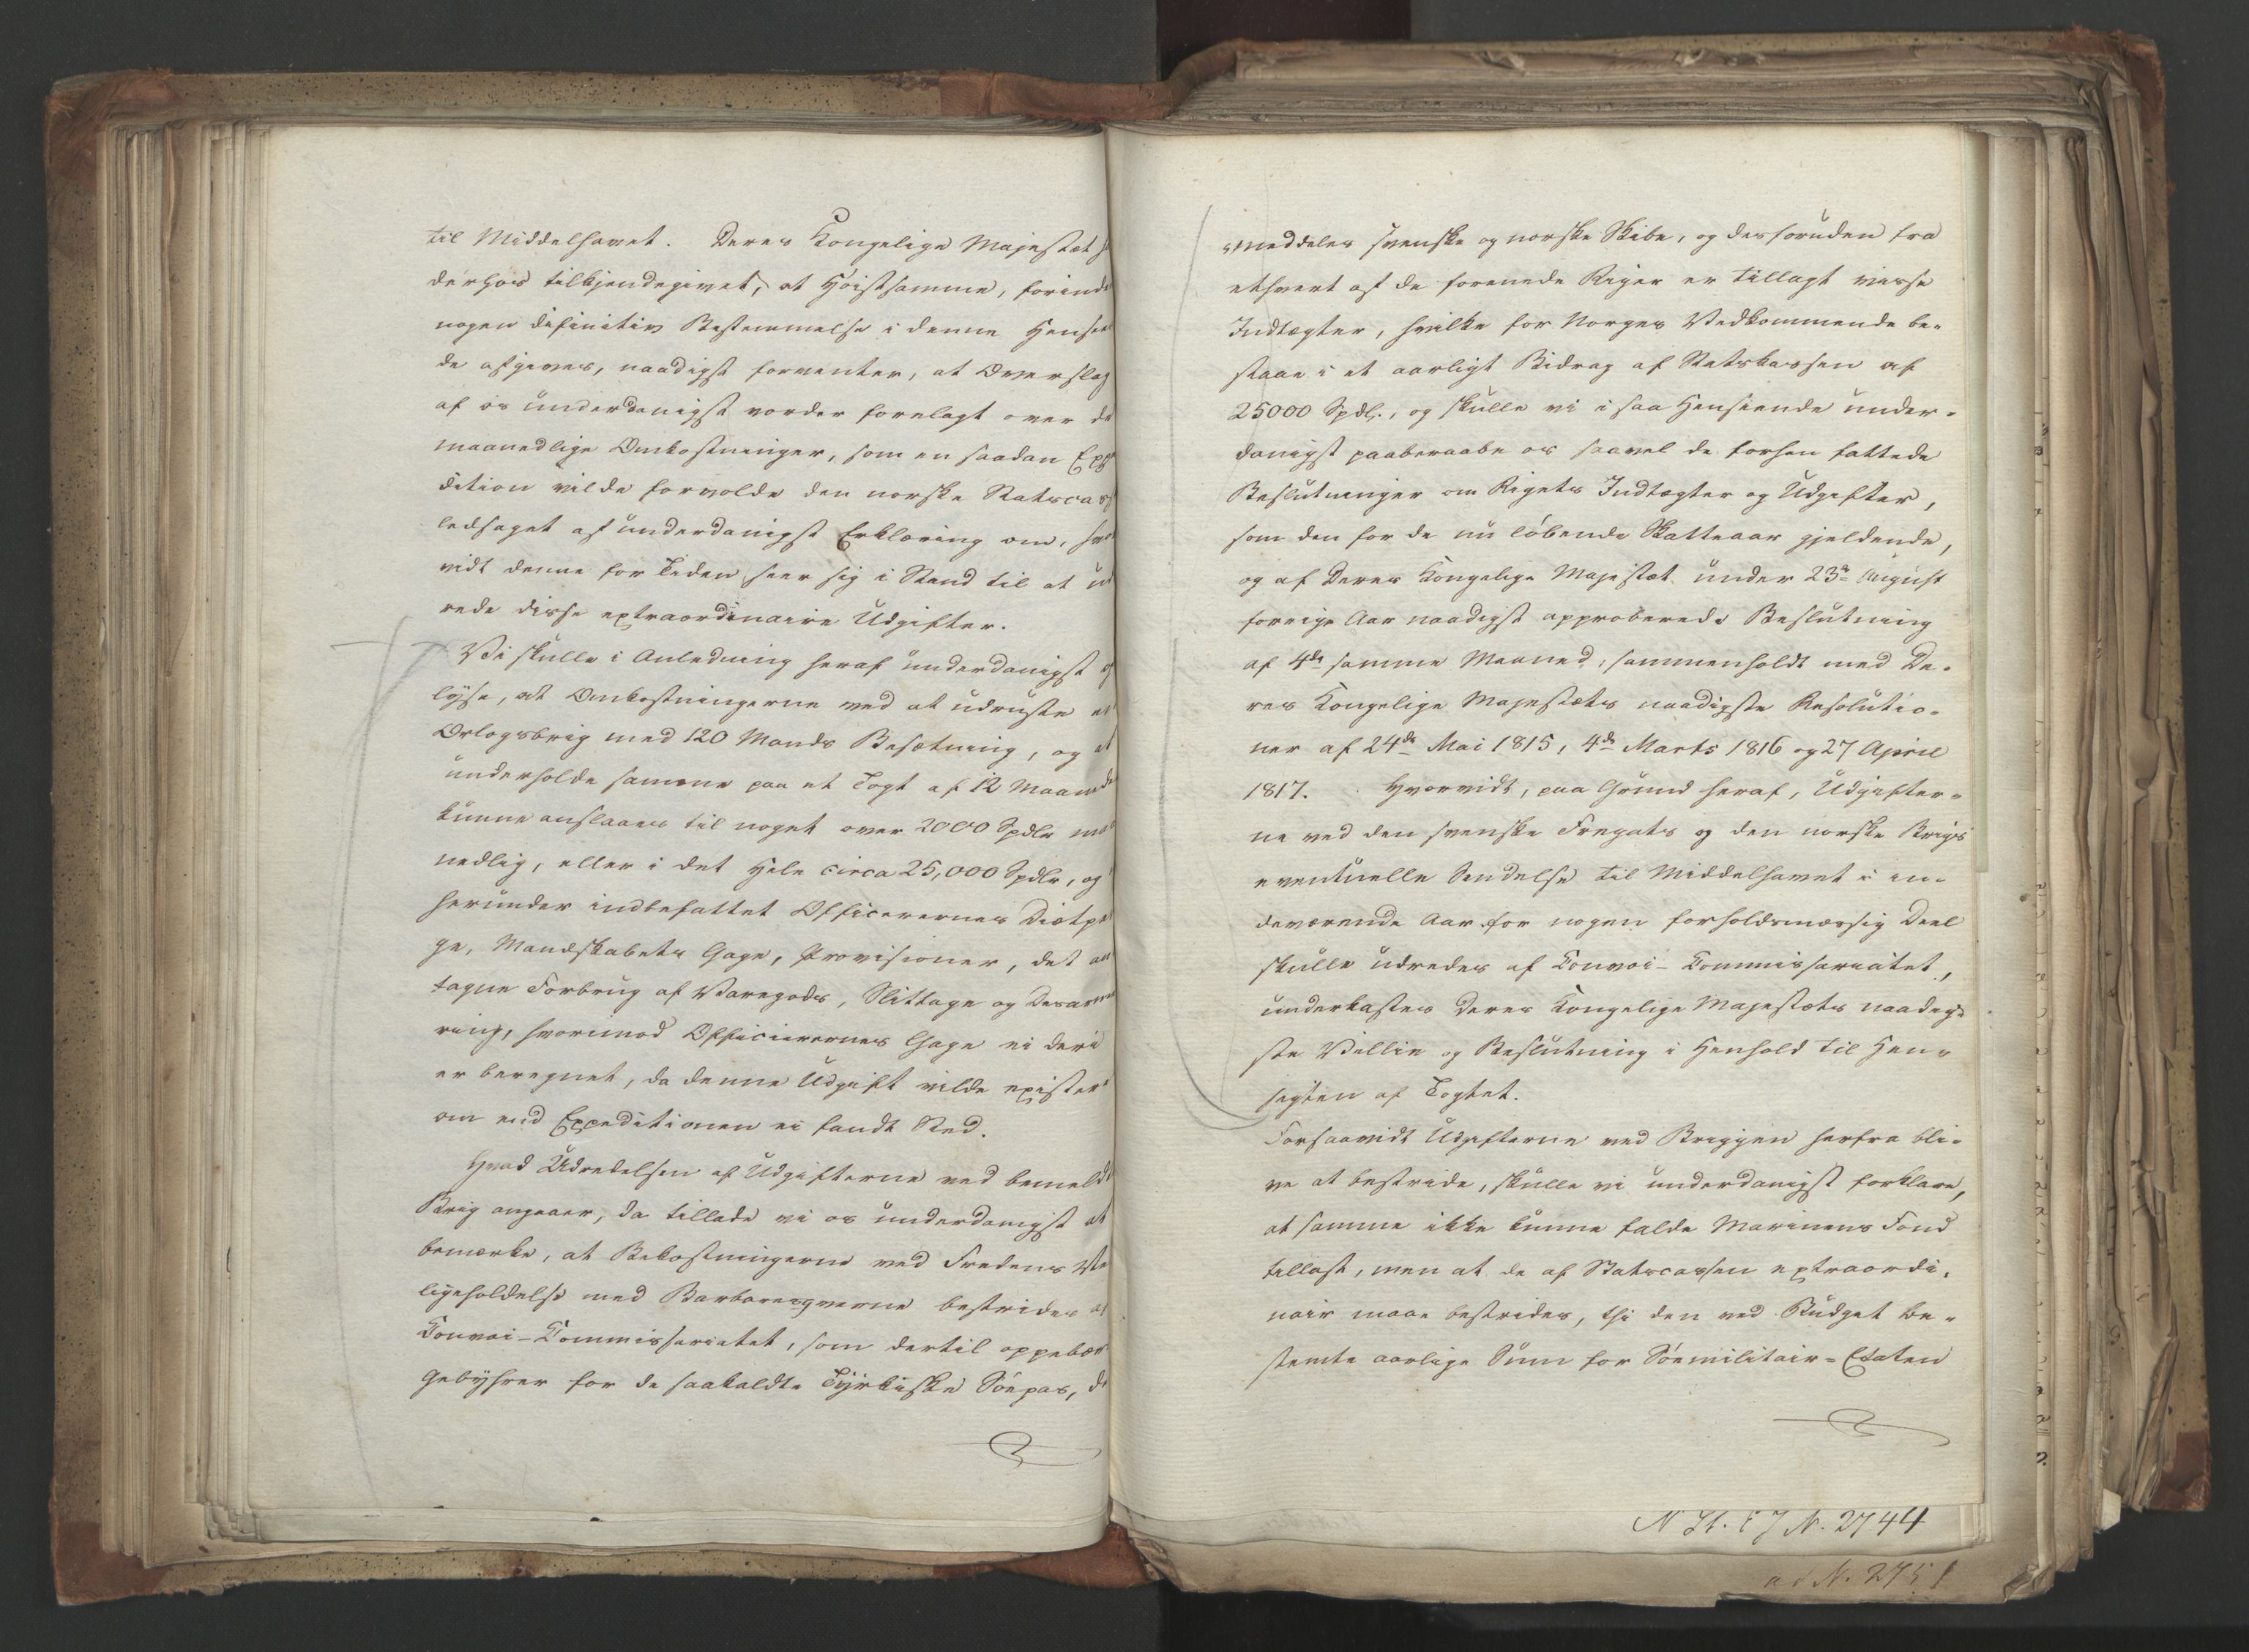 til Middelhavet. Deres Kongelige Majestæt h
derhos tilkjendegivet, at Høistsamme, forinde
nogen difinitiv Bestemmelse i denne Hensee
de afgives, naadigst forventer, at Overslag
af os underdanigst vorder forelagt over de
maanedlige Omkostninger, som en saadan Exp
dition vilde forvolde den norske Statscass
ledsaget af underdanigst Erklæring om, hvo
vidt denne for Tiden seer sig i Stand til at u
rede disse extraordinaire Udgifter.
Vi skulle i Anledning heraf underdanigst op
lyse, at Omkostningerne ved at udruste et
Orlogsbrig med 120 Mands Besætning, og at
underholde samme paa et Togt af 12 Maaneder
kunne anslaaes til noget over 2000 Spdlr maa
nedlig, eller i det Hele circa 25,000 Spdlr, og
herunder indbefattet Officerernes Diætpe
ge, Mandskabets Gage, Provisioner, det an
tagne Forbrug af Varegods, Slittage og Desarme
ring, hvorimod Officierernes Gage ei deri
er beregnet, da denne Udgift vilde existere
om end Expeditionen ei fandt Sted.
Hvad Udredelsen af Udgifterne ved bemeldte
Brig angaaer, da tillade vi os underdanigst at
bemærke, at Bekostningerne ved Fredens Ve
ligeholdelse med Barbaresqverne bestrides af
Convoi-Commissariatet, som dertil oppebær
Gebyhrer for de saakaldte Tyrkiske Søepas, de
meddeles svenske og norske Skibe, og desforuden fra
ethvert af de forenede Riger er tillagt visse
Indtægter, hvilke for Norges Vedkommende be-
staae i et aarligt Bidrag af Statskassen af
25000 Spdl., og skulle vi i saa Henseende under-
danigst paaberaabe os saavel de forhen fattede
Beslutninger om Rigets Indtægter og Udgifter,
som den for de nu løbende Skatteaar gjeldende,
og af Deres Kongelige Majestæt under 23de August
forrige Aar naadigst approberede Beslutning
af 4de samme Maaned, sammenholdt med De-
res Kongelige Majestæts naadigste Resolutio-
ner af 24de Mai 1815, 4de Marts 1816 og 27 April
1817. Hvorvidt, paa Grund heraf, Udgifter-
ne ved den svenske Fregats og den norske Brigs
eventuelle Sendelse til Middelhavet i in-
deværende Aar for nogen forholdsmæssig Deel
skulle udredes af Convoi-Commissariatet,
underkastes Deres Kongelige Majestæts naadig-
ste Villie og Beslutning i Henhold til Hen-
sigten af Togtet.
Forsaavidt Udgifterne ved Briggen herfra bli-
ve at bestride, skulle vi underdanigst forklare,
at samme ikke kunne falde Marinens Fond
tillast, men at de af Statscassen extraordi-
nair maae bestrides, thi den ved Budget be-
stemte aarlige Sum for Søemilitair-Etaten
N. 2744
ad N. 2751